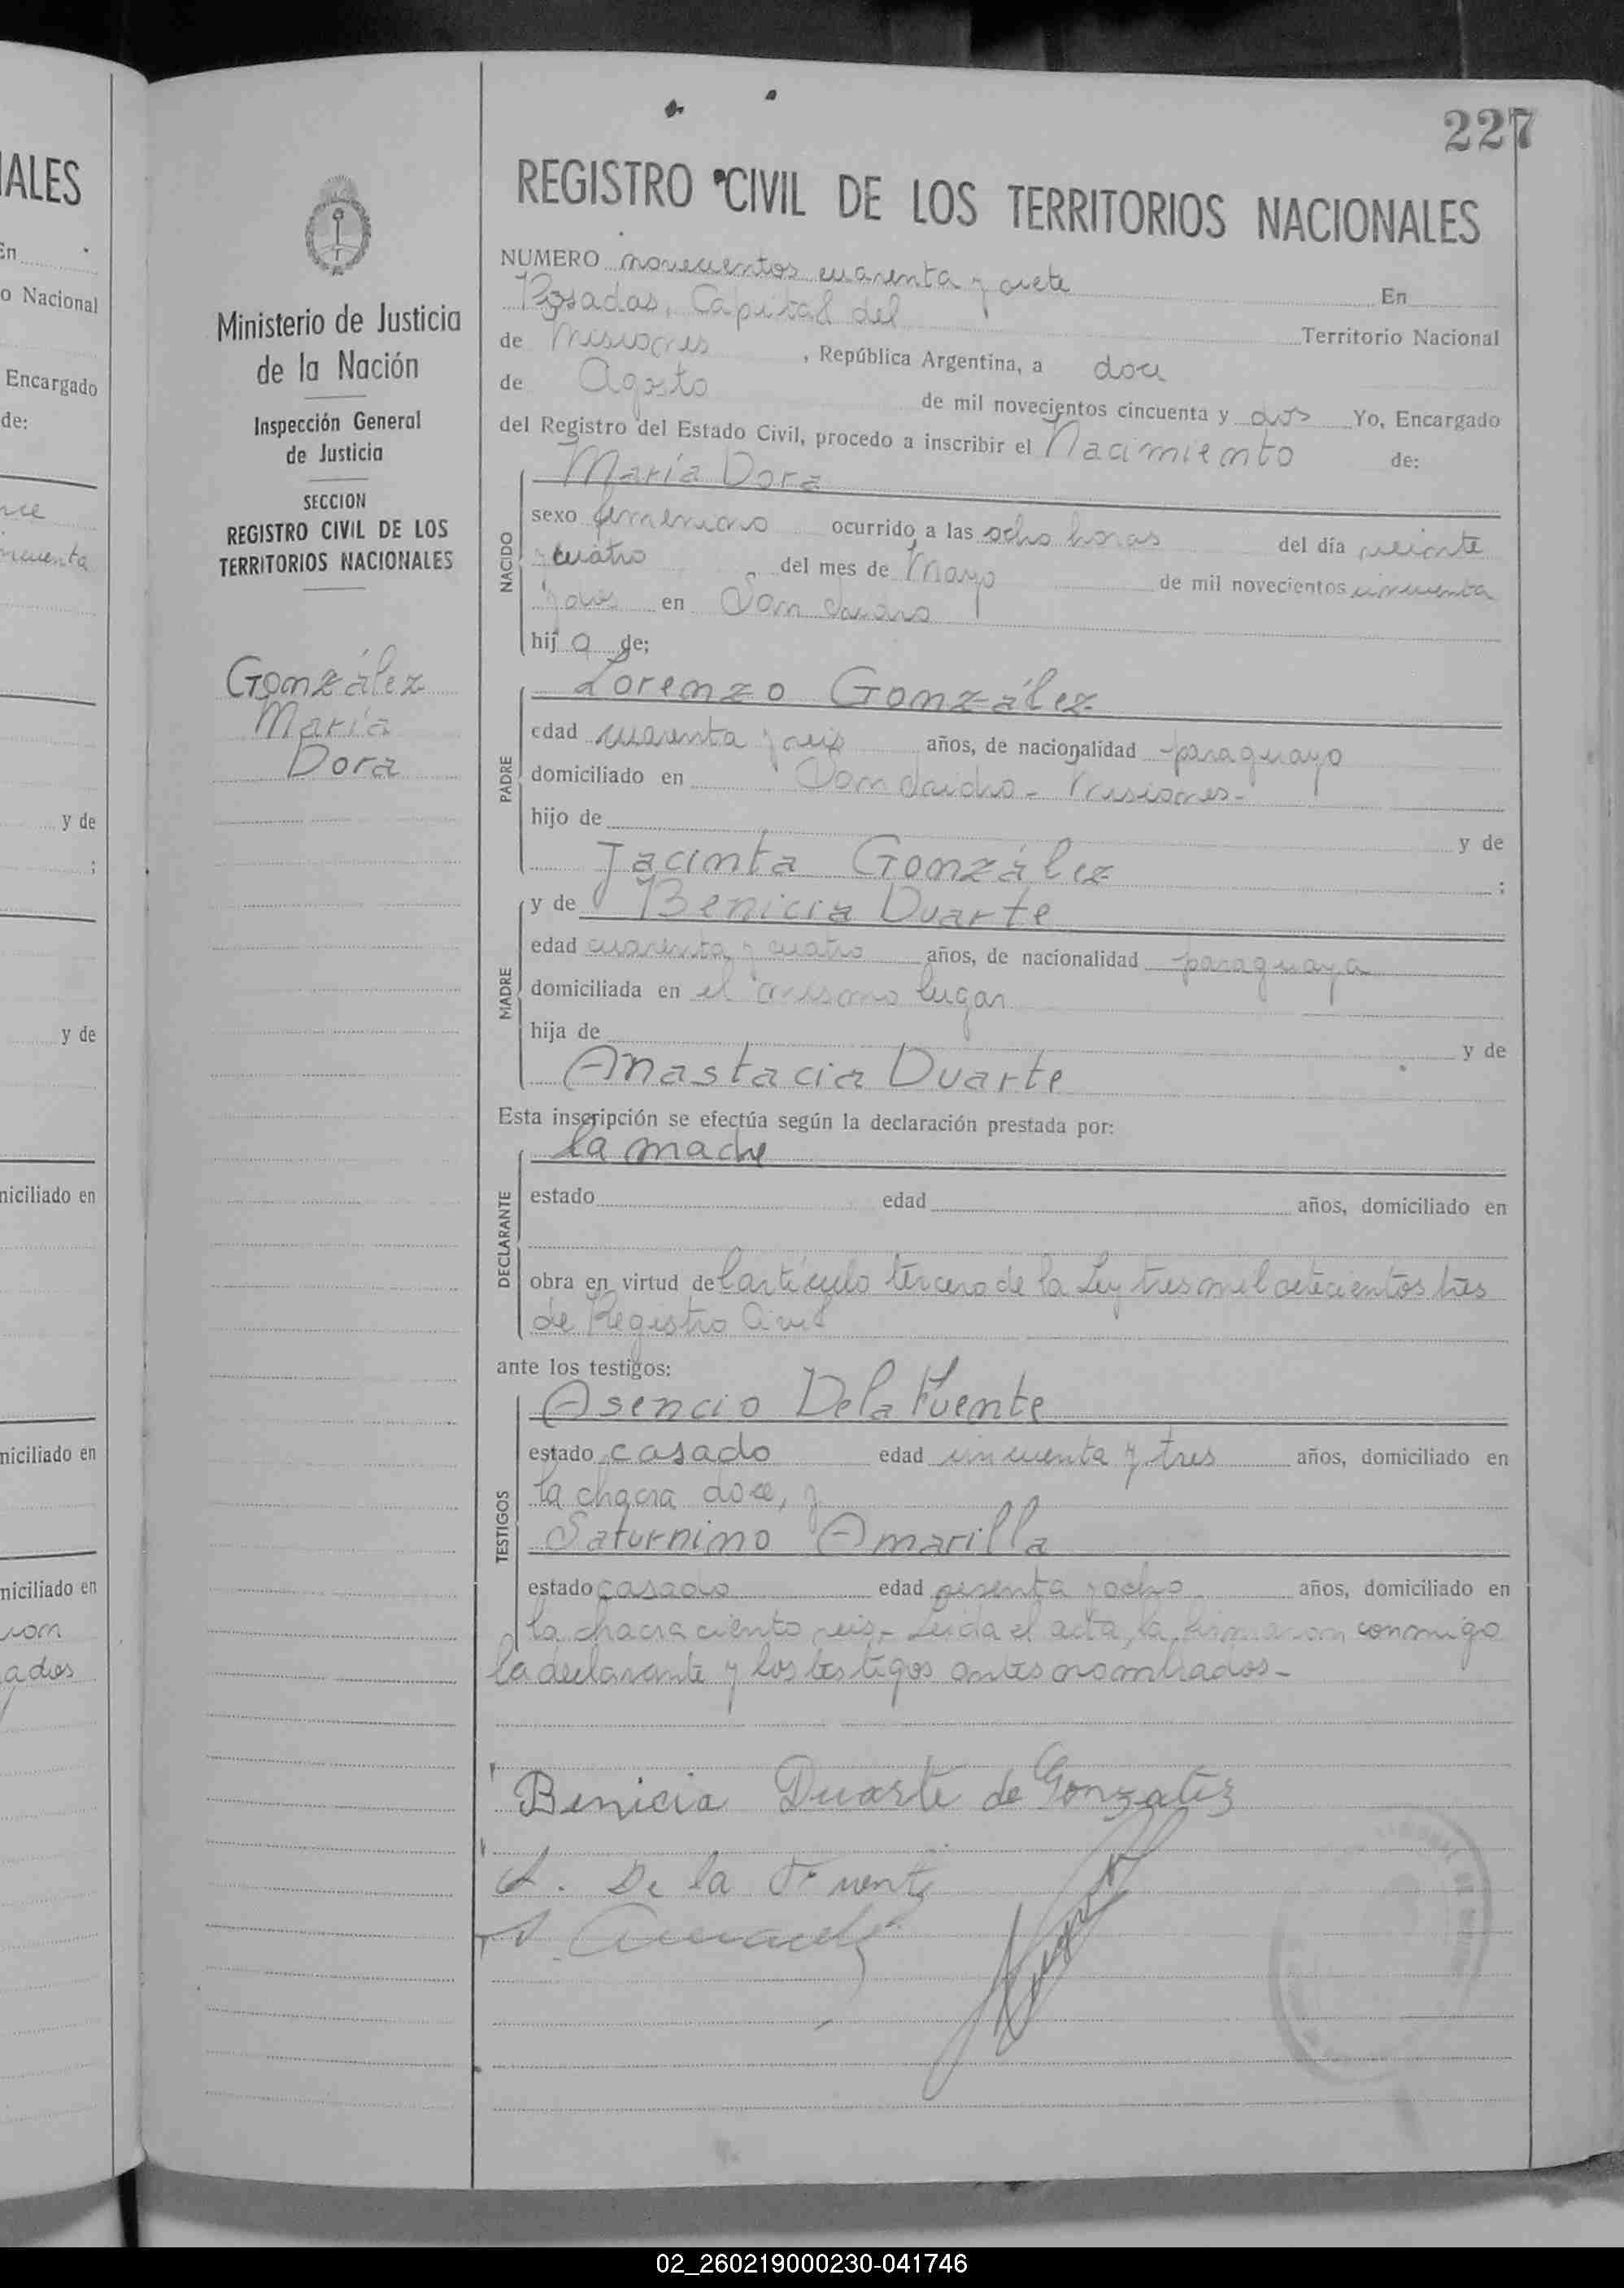 227
REGISTRO CIVIL DE LOS TERRITORIOS NACIONALES
NUMERO novecientos cuarenta y siete En
Posadas, Capital del Territorio Nacional
de Misiones, República Argentina, a doce
de Agosto de mil novecientos cincuenta y dos Yo, Encargado
del Registro del Estado Civil, procedo a inscribir el Nacimiento de:
María Dora
NACIDO
sexo femenino ocurrido a las ocho horas del día veinte
y cuatro del mes de Mayo de mil novecientos cincuenta
y dos en San
hij a de;
PADRE
Lorenzo González
edad cuarenta y seis años, de nacionalidad paraguayo
domiciliado en San - Misiones-
hijo de y de
Jacinta González ;
MADRE
y de Benicia Duarte
edad cuarenta y cuatro años, de nacionalidad paraguaya
domiciliada en el mismo lugar
hija de y de
Anastacia Duarte
Esta inscripción se efectúa según la declaración prestada por:
DECLARANTE
la madre
estado edad años, domiciliado en
obra en virtud del artículo tercero de la Ley tres mil setecientos tres
de Registro Civil
ante los testigos:
TESTIGOS
Asencio De la Fuente
estado casado edad cincuenta y tres años, domiciliado en
la chacra doce, y
Saturnino Amarilla
estado casado edad sesenta y ocho años, domiciliado en
la chacra ciento seis.- Leída el acta, la firmaron conmigo
la declarante y los testigos antes nombrados-
Benicia Duarte de Gonzalez
A. De la Fuente
Ministerio de Justicia
de la Nación
Inspección General
de Justicia
SECCION
REGISTRO CIVIL DE LOS
TERRITORIOS NACIONALES
González
María
Dora
IALES
En
o Nacional
Encargado
de:
y de
;
y de
niciliado en
niciliado en
niciliado en
02_260219000230-041746